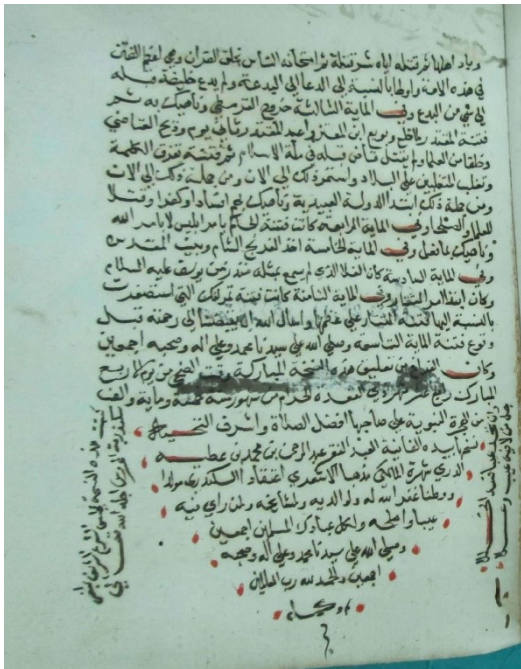 وباد اهلها ثم قتله اياه شر قتلة ثم امتحانه الناس بخلق القران وهي اعظم الفتن
في هذه الامة واولها بالنسبة الى الدعا الى البدعة ولم يدع خليفة قبله
الى شي من البدع وفي الماية الثالثة خروج القرمطي وناهيك به ثم
فتنة المقتدر لما خلع وبويع ابن المعتز واعيد المقتدر ثاني يوم وذبح القاضي
وخلقا من العلما ولم يقتل قاض قبله في ملة الاسلام ثم فتنة تفرق الكلمة
وتغلب المتغلبين على البلاد واستمر ذلك الى الان ومن جملة ذلك الى الان
ومن جملة ذلك ابتدا الدولة العبيدية وناهيك بهم افسادا وكفرا وقتلا
للعلما والصلحا وفي الماية الرابعة كانت فتنة الحاكم بامر ابليس لا بامر الله
وناهيك بما فعل وفي الماية الخامسة اخذ الفرنج الشام وبيت المقدس
وفي الماية السادسة كان الغلا الذي لم يسمع بمثله منذ زمن يوسف عليه السلام
وكان ابتدا امر التتار وفي الماية الثامنة كانت فتنة تمرلنك التي استصغرت
بالنسبة اليها فتنة التتار على عظمها واسال الله ان يقبضنا الى رحمته قبل
وقوع فتنة الماية التاسعة وصلى الله على سيدنا محمد وعلى اله وصحبه اجمعين
وكان الفراغ من تعليق هذه النسخة المباركة وقت الضحى من يوم الاربع
المبارك رابع عشر شهر ذي القعدة الحرام من شهور سنة وماية والف
من الهجرة النبوية على صاحبها افضل الصلاة واشرف التحية
نسخها بيده الفانية العبد الفقير عبد الرحمن بن محمد بن عطية
الدري شهرة المالكي مذهبا الاشعري اعتقادا السكندري مولدا
ووطنا غفر الله له ولوالديه ولمشايخه ولمن راى فيه
عيبا واصلحه ولكل عباد الله المسلمين اجمعين
وصلى الله على سيدنا محمد وعلى اله وصحبه
اجمعين والحمد لله رب العالمين
م
وان تجد عيبا فسد الخللا
جل من لا فيه عيب وعلا